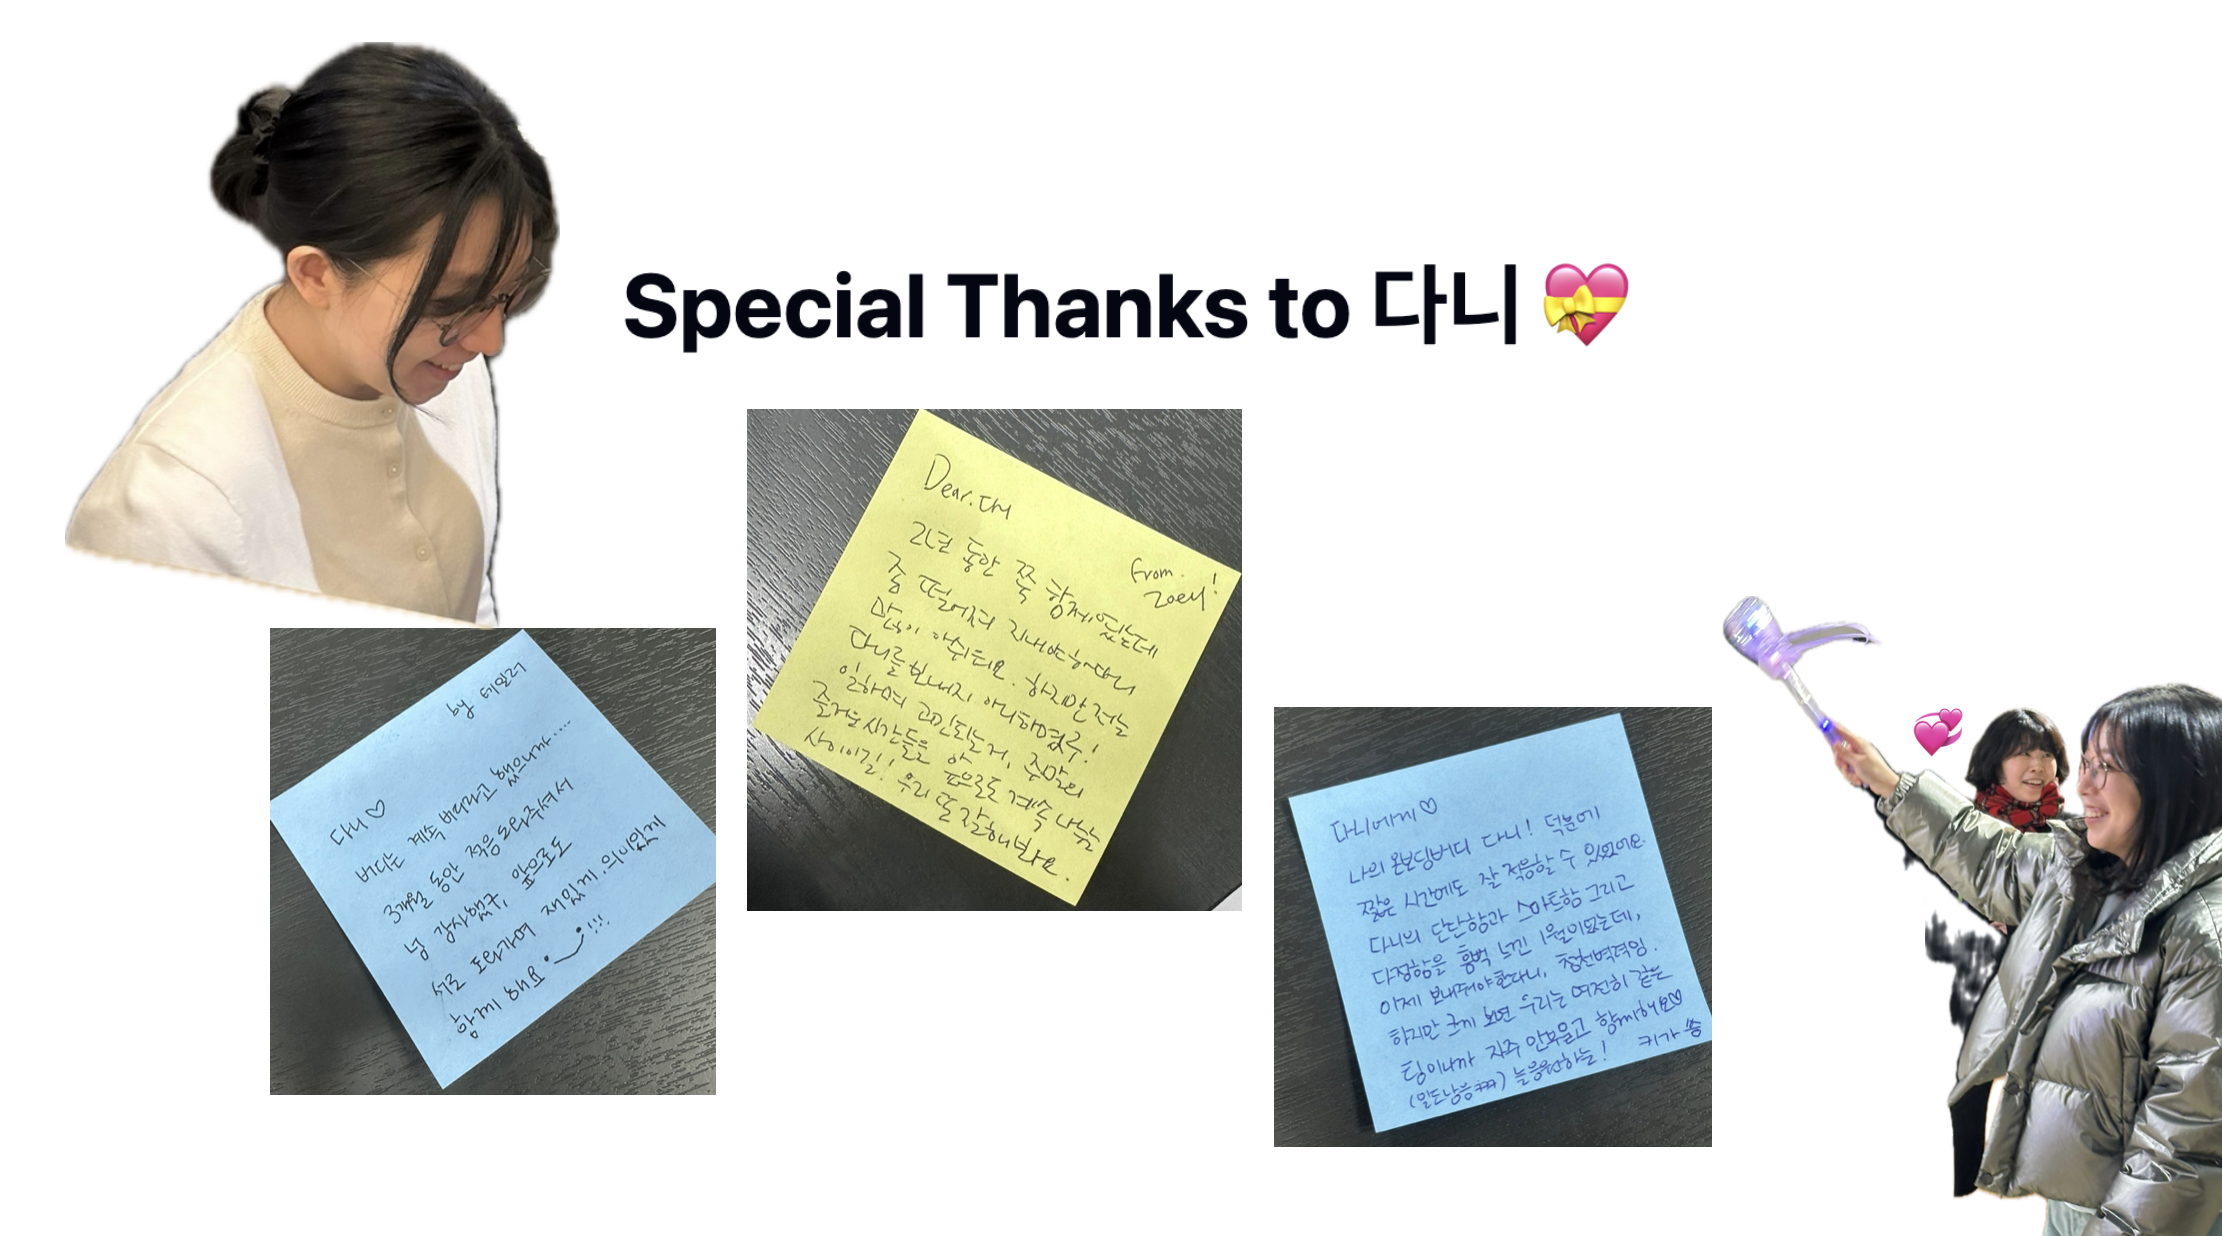 Special Thanks to 다니 💝
다니♡
버디는 계속 버디라고 했으니까...
3개월 동안 적응 도와주셔서
넘 감사했구, 앞으로도
서로 도와가며 재밌게. 의미있게
함께 해요!!!
Dear.다니
From.
Zoey!
2년 동안 쭉 함께였는데
좀 떨어져 지내야 하다니
많이 아쉬워요. 하지만 저는
다니를 보내지 아니하였구!
일하며 고민되는거, 주말의
즐거운 시간들을 앞으로도 계속 나누는
사이이길! 우리 또 잘해봐요.
다니에게♡
나의 온보딩버디 다니! 덕분에
짧은 시간에도 잘 적응할 수 있었어요.
다니의 단단함과 스마트함 그리고
다정함을 흠뻑 느낀 1월이었는데,
이제 보내줘야한다니, 청천벽력임.
하지만 크게 보면 우리는 여전히 같은
팀이니까 자주 안부묻고 함께해요♡
늘응원하는! 키가 씀